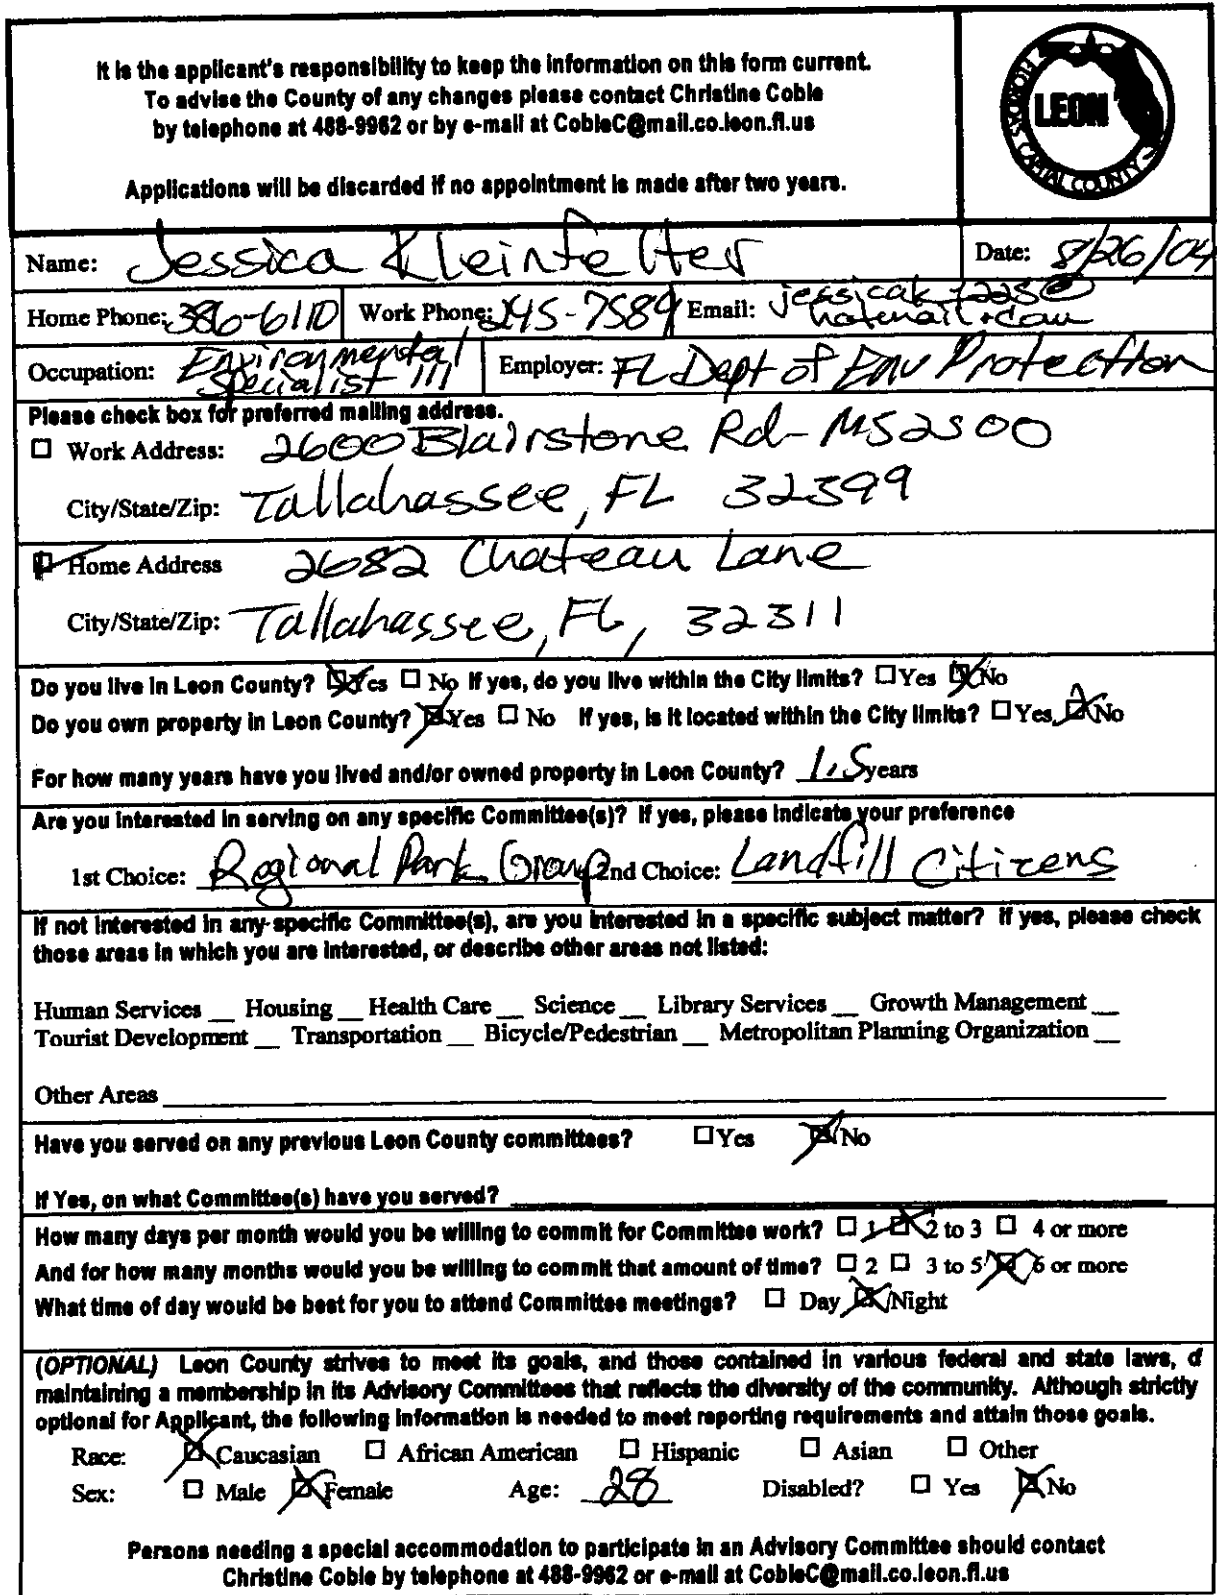 It is the applicant's responsibility to keep the information on this form current.
To advise the County of any changes please contact Christine Coble
by telephone at 488-9962 or by e-mail at CobleC@mail.co.leon.fl.us
Applications will be discarded if no appointment is made after two years.
LEON
FLORIDA'S CAPITAL COUNTY
Name: Jessica Kleinfelter Date: 8/26/04
Home Phone: 386-6110 Work Phone: 245-7589 Email: hotmail.com
Occupation: Environmental Specialist III Employer: FL Dept of Env Protection
Please check box for preferred mailing address.
☐ Work Address: 2600 Blairstone Rd- MS2500
City/State/Zip: Tallahassee, FL 32399
☑ Home Address 2682 Chateau Lane
City/State/Zip: Tallahassee, FL, 32311
Do you live in Leon County? ☒ Yes ☐ No If yes, do you live within the City limits? ☐ Yes ☒ No
Do you own property in Leon County? ☒ Yes ☐ No If yes, is it located within the City limits? ☐ Yes ☒ No
For how many years have you lived and/or owned property in Leon County? 1.5 years
Are you interested in serving on any specific Committee(s)? If yes, please indicate your preference
1st Choice: Regional Park Group 2nd Choice: Landfill Citizens
If not interested in any specific Committee(s), are you interested in a specific subject matter? If yes, please check
those areas in which you are interested, or describe other areas not listed:
Human Services __ Housing __ Health Care __ Science __ Library Services __ Growth Management __
Tourist Development __ Transportation __ Bicycle/Pedestrian __ Metropolitan Planning Organization __
Other Areas
Have you served on any previous Leon County committees? ☐ Yes ☒ No
If Yes, on what Committee(s) have you served?
How many days per month would you be willing to commit for Committee work? ☐ 1 ☒ 2 to 3 ☐ 4 or more
And for how many months would you be willing to commit that amount of time? ☐ 2 ☐ 3 to 5 ☒ 6 or more
What time of day would be best for you to attend Committee meetings? ☐ Day ☒ Night
(OPTIONAL) Leon County strives to meet its goals, and those contained in various federal and state laws, of
maintaining a membership in its Advisory Committees that reflects the diversity of the community. Although strictly
optional for Applicant, the following information is needed to meet reporting requirements and attain those goals.
Race: ☒ Caucasian ☐ African American ☐ Hispanic ☐ Asian ☐ Other
Sex: ☐ Male ☒ Female Age: 28 Disabled? ☐ Yes ☒ No
Persons needing a special accommodation to participate in an Advisory Committee should contact
Christine Coble by telephone at 488-9962 or e-mail at CobleC@mail.co.leon.fl.us